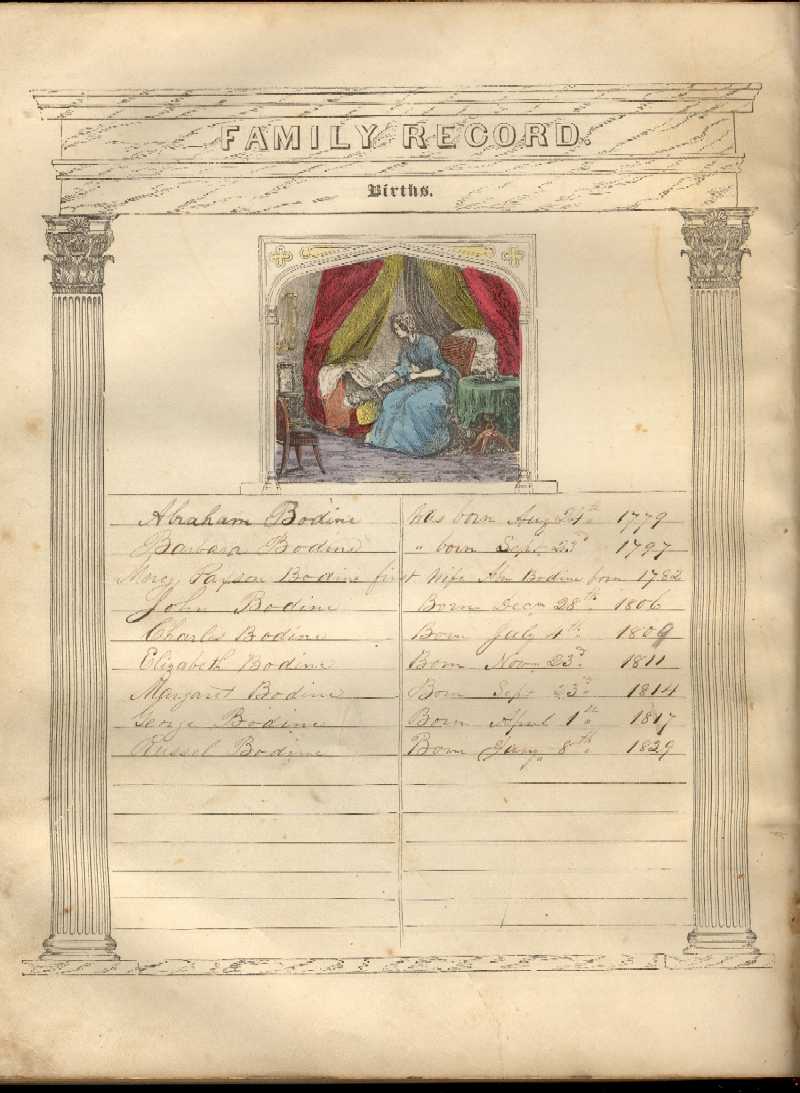 FAMILY RECORD.
Births.
Abraham Bodine was born Aug 24th 1779
Barbara Bodine " born Sept. 23d 1797
Mercy Paxson Bodine first Wife Abm Bodine born 1782
John Bodine Born Decm 28th 1806
Charles Bodine Born July 4th 1809
Elizabeth Bodine Born Novm 23d 1811
Margaret Bodine Born Sept 23d 1814
George Bodine Born April 1st 1817
Russel Bodine Born Jany 8th 1829